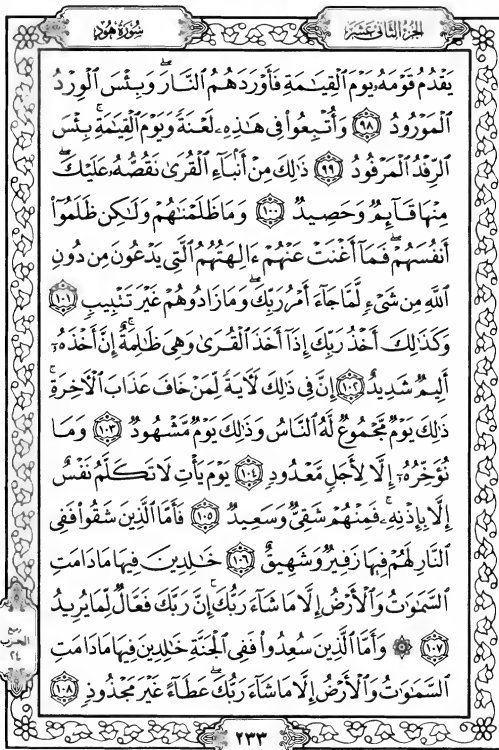 سُورَةُ هُودٍ
الجُزْءُ الثَّانِى عَشَرَ
يَقْدُمُ قَوْمَهُۥ يَوْمَ ٱلْقِيَٰمَةِ فَأَوْرَدَهُمُ ٱلنَّارَۖ وَبِئْسَ ٱلْوِرْدُ
ٱلْمَوْرُودُ ۝٩٨ وَأُتْبِعُوا۟ فِى هَٰذِهِۦ لَعْنَةً وَيَوْمَ ٱلْقِيَٰمَةِۚ بِئْسَ
ٱلرِّفْدُ ٱلْمَرْفُودُ ۝٩٩ ذَٰلِكَ مِنْ أَنۢبَآءِ ٱلْقُرَىٰ نَقُصُّهُۥ عَلَيْكَۖ
مِنْهَا قَآئِمٌ وَحَصِيدٌ ۝١٠٠ وَمَا ظَلَمْنَٰهُمْ وَلَٰكِن ظَلَمُوٓا۟
أَنفُسَهُمْۖ فَمَآ أَغْنَتْ عَنْهُمْ ءَالِهَتُهُمُ ٱلَّتِى يَدْعُونَ مِن دُونِ
ٱللَّهِ مِن شَىْءٍ لَّمَّا جَآءَ أَمْرُ رَبِّكَۖ وَمَا زَادُوهُمْ غَيْرَ تَتْبِيبٍ ۝١٠١
وَكَذَٰلِكَ أَخْذُ رَبِّكَ إِذَآ أَخَذَ ٱلْقُرَىٰ وَهِىَ ظَٰلِمَةٌۚ إِنَّ أَخْذَهُۥٓ
أَلِيمٌ شَدِيدٌ ۝١٠٢ إِنَّ فِى ذَٰلِكَ لَءَايَةً لِّمَنْ خَافَ عَذَابَ ٱلْءَاخِرَةِۚ
ذَٰلِكَ يَوْمٌ مَّجْمُوعٌ لَّهُ ٱلنَّاسُ وَذَٰلِكَ يَوْمٌ مَّشْهُودٌ ۝١٠٣ وَمَا
نُؤَخِّرُهُۥٓ إِلَّا لِأَجَلٍ مَّعْدُودٍ ۝١٠٤ يَوْمَ يَأْتِ لَا تَكَلَّمُ نَفْسٌ
إِلَّا بِإِذْنِهِۦۚ فَمِنْهُمْ شَقِىٌّ وَسَعِيدٌ ۝١٠٥ فَأَمَّا ٱلَّذِينَ شَقُوا۟ فَفِى
ٱلنَّارِ لَهُمْ فِيهَا زَفِيرٌ وَشَهِيقٌ ۝١٠٦ خَٰلِدِينَ فِيهَا مَا دَامَتِ
ٱلسَّمَٰوَٰتُ وَٱلْأَرْضُ إِلَّا مَا شَآءَ رَبُّكَۚ إِنَّ رَبَّكَ فَعَّالٌ لِّمَا يُرِيدُ
۝١٠٧ ۞ وَأَمَّا ٱلَّذِينَ سُعِدُوا۟ فَفِى ٱلْجَنَّةِ خَٰلِدِينَ فِيهَا مَا دَامَتِ
ٱلسَّمَٰوَٰتُ وَٱلْأَرْضُ إِلَّا مَا شَآءَ رَبُّكَۖ عَطَآءً غَيْرَ مَجْذُوذٍ ۝١٠٨
ربع
الحزب
٢٤
٢٣٣